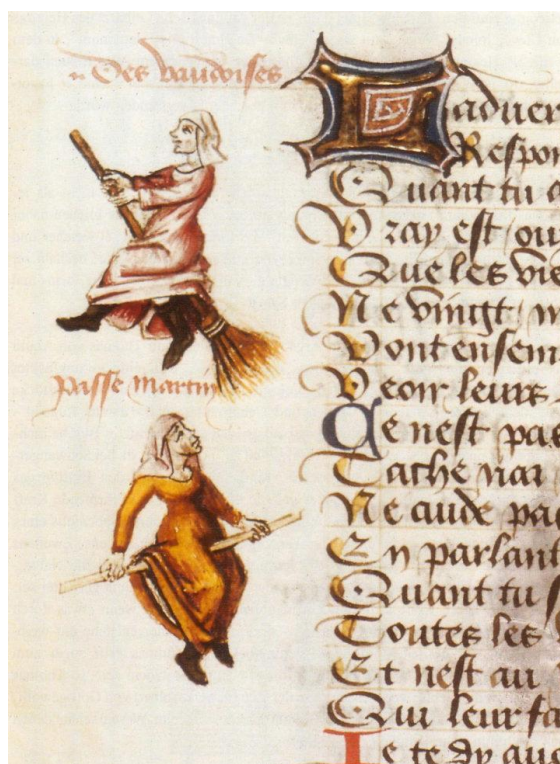 Des vaudoises
passe martin
Laduer
Respon
Quant tu
Vray est / ou
Que les vie
Ne vingt / m
Vont ensem
Veoir leurs
Ce nest pas
Tache par
Ne cuide pas
En parlant
Quant tu
Toutes les
Et nest au
Qui leur fa
Je te dy que